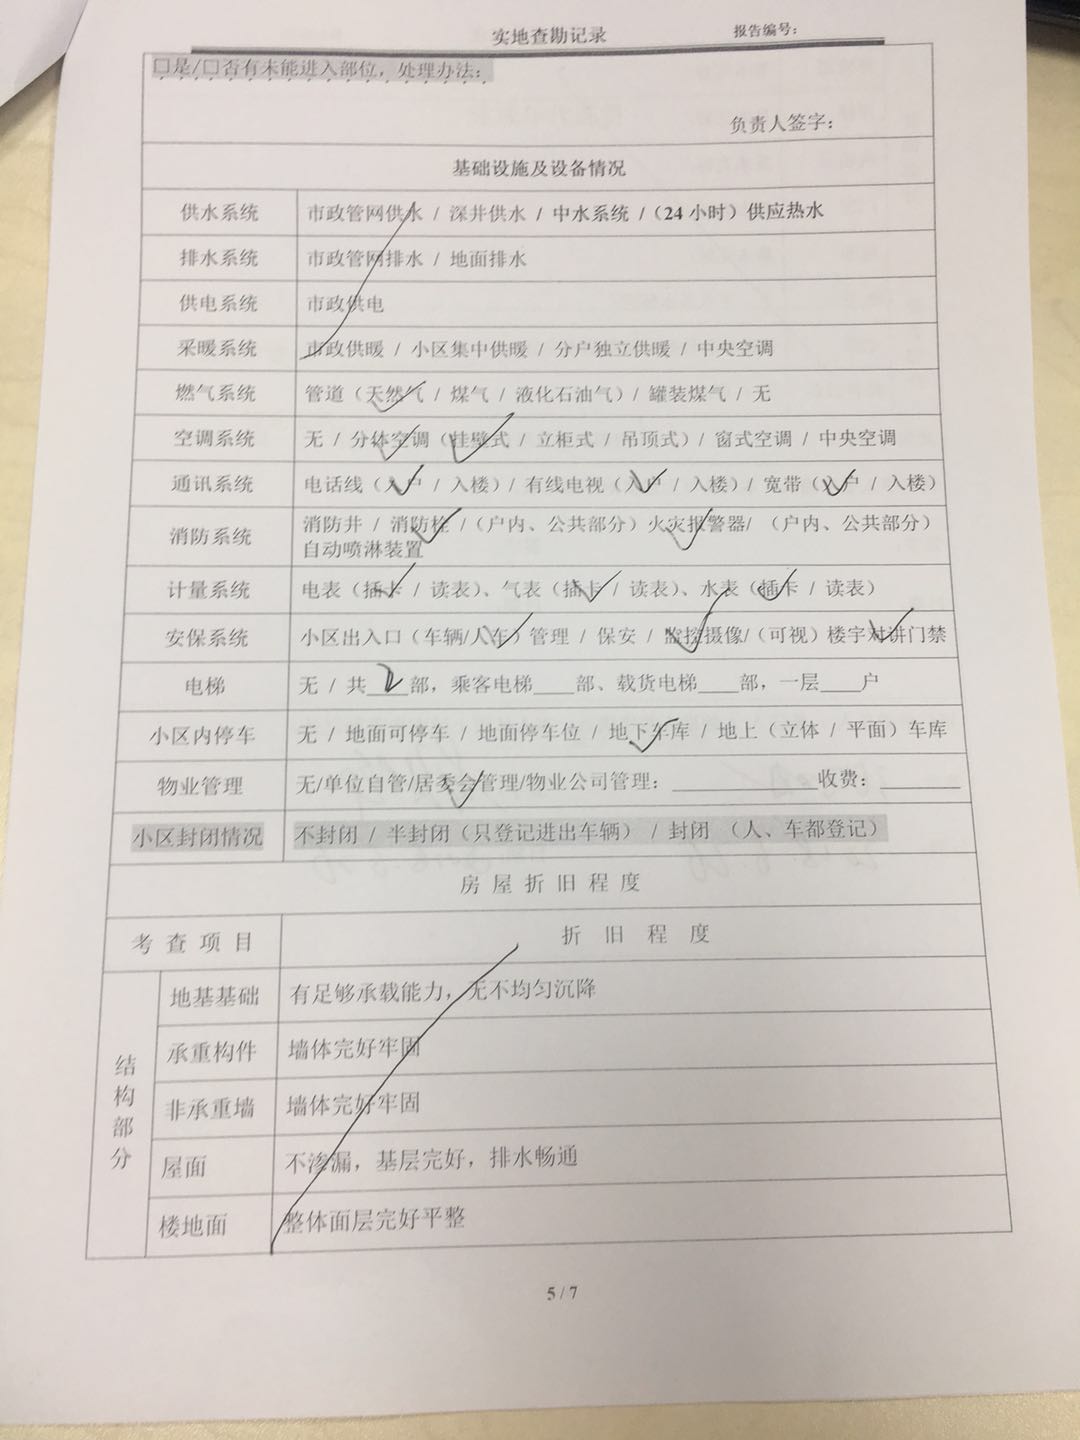 实地查勘记录 报告编号：
□是/□否有未能进入部位，处理办法：
负责人签字：
基础设施及设备情况
供水系统 市政管网供水 / 深井供水 / 中水系统 /（24 小时）供应热水
排水系统 市政管网排水 / 地面排水
供电系统 市政供电
采暖系统 市政供暖 / 小区集中供暖 / 分户独立供暖 / 中央空调
燃气系统 管道（天然气 / 煤气 / 液化石油气）/ 罐装煤气 / 无
空调系统 无 / 分体空调（挂壁式 / 立柜式 / 吊顶式）/ 窗式空调 / 中央空调
通讯系统 电话线（入户 / 入楼）/ 有线电视（入户 / 入楼）/ 宽带（入户 / 入楼）
消防系统 消防井 / 消防栓 /（户内、公共部分）火灾报警器/ （户内、公共部分）
自动喷淋装置
计量系统 电表（插卡 / 读表）、气表（插卡 / 读表）、水表（插卡 / 读表）
安保系统 小区出入口（车辆/人车）管理 / 保安 / 监控摄像/（可视）楼宇对讲门禁
电梯 无 / 共 2 部，乘客电梯____部、载货电梯____部，一层____户
小区内停车 无 / 地面可停车 / 地面停车位 / 地下车库 / 地上（立体 / 平面）车库
物业管理 无/单位自管/居委会管理/物业公司管理：______________收费：________
小区封闭情况 不封闭 / 半封闭（只登记进出车辆） / 封闭 （人、车都登记）
房屋折旧程度
考查项目 折旧程度
结构部分
地基基础 有足够承载能力，无不均匀沉降
承重构件 墙体完好牢固
非承重墙 墙体完好牢固
屋面 不渗漏，基层完好，排水畅通
楼地面 整体面层完好平整
5 / 7